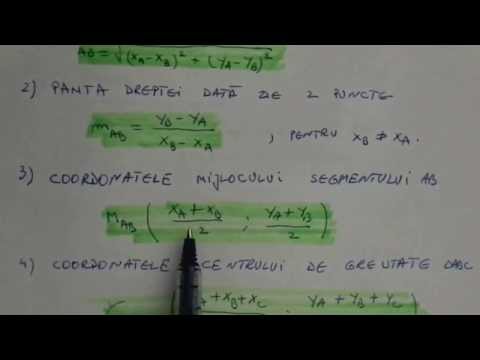 AB = √(x_A - x_B)² + (y_A - y_B)²
2) PANTA DREPTEI DATĂ DE 2 PUNCTE
m_AB = (y_B - y_A) / (x_B - x_A) , PENTRU x_B ≠ x_A.
3) COORDONATELE MIJLOCULUI SEGMENTULUI AB
M_AB ( (x_A + x_B) / 2 ; (y_A + y_B) / 2 )
4) COORDONATELE CENTRULUI DE GREUTATE ΔABC
+ x_B + x_C y_A + y_B + y_C